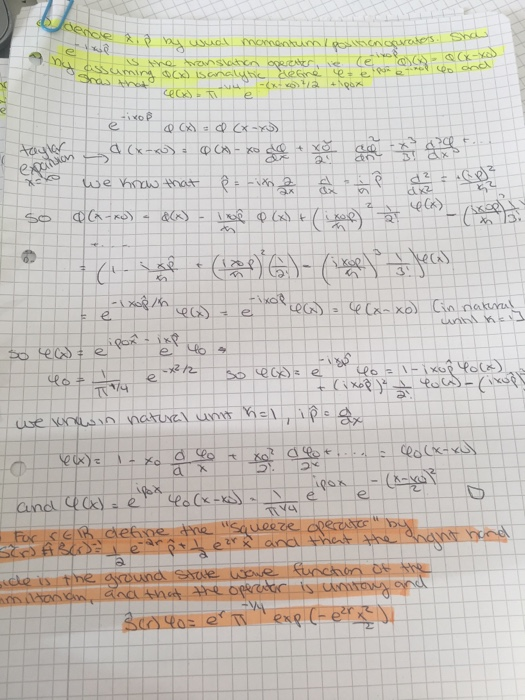 denote x̂, p̂ by usual momentum/position operators. Show
e^{-ix0p̂} is the translation operator, ie (e^{-ix0p̂} φ)(x) = φ(x-x0)
by assuming φ(x) is analytic define φ = e^{ip0x̂} e^{-ix0p̂} φ0 and
show that
φ(x) = π^{-1/4} e^{-(x-x0)²/2 + ip0x}
e^{-ix0p̂} φ(x) = φ(x-x0)
taylor expansion → φ(x-x0) = φ(x) - x0 dφ/dx + x0²/2! dφ²/dx² - x³/3! d³φ/dx³ + ...
we know that p̂ = -iħ ∂/∂x d/dx = i/ħ p̂ d²/dx² = (ip̂)²/ħ²
so φ(x-x0) = φ(x) - ix0p̂/ħ φ(x) + (ix0p̂/ħ)² 1/2! φ(x) - (ix0p̂/ħ)³ 1/3!
+ ....
= (1 - i x0p̂/ħ + (ix0p̂/ħ)² (1/2!) - (ix0p̂/ħ)³ 1/3!) φ(x)
= e^{-ix0p̂/ħ} φ(x) = e^{-ix0p̂} φ(x) = φ(x-x0) (in natural
so φ(x) = e^{ip0x̂} e^{-ix0p̂} φ0
φ0 = 1/π^{1/4} e^{-x²/2} so φ(x) = e^{-ix0p̂} φ0 = 1 - ix0p̂ φ0(x)
+ (ix0p̂)² 1/2! φ0(x) - (ix0p̂)
we know in natural unit ħ=1, ip̂ = d/dx
φ(x) = 1 - x0 d φ0/d x + x0²/2! d φ0/2x + .... = φ0(x-x0)
and φ(x) = e^{ip0x} φ0(x-x0) = 1/π^{1/4} e^{ip0x} e^{-(x-x0)²/2} □
For r∈ℝ, define the "squeeze operator" by
Ŝ(r) Ĥ Ŝ(r) = 1/2 e^{-2r} p̂² + 1/2 e^{2r} x̂² and that the right hand
side is the ground state wave function of the
hamiltonian, and that the operator is unitary and
Ŝ(r) φ0 = e^r π^{-1/4} exp(-e^{2r} x²/2)